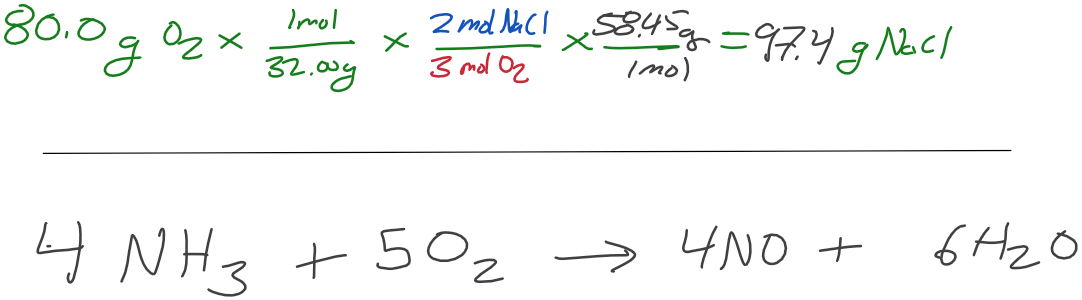 80.0 g O₂ × 1mol/32.00g × 2 mol NaCl/3 mol O₂ × 58.45g/1mol = 97.4 g NaCl
4 NH₃ + 5O₂ → 4NO + 6H₂O